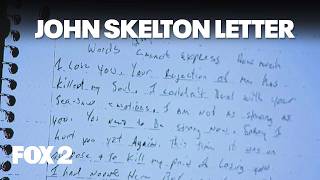 JOHN SKELTON LETTER
Words Cannot express How much
I Love you. Your Rejection of me has
Killed my Soul. I couldn't Deal with your
See-Saw emotions. I am not as strong as
you. You need to Be strong now. Sorry I
hurt you yet Again. This time it was on
to Kill my pain of Losing you.
I had
FOX 2